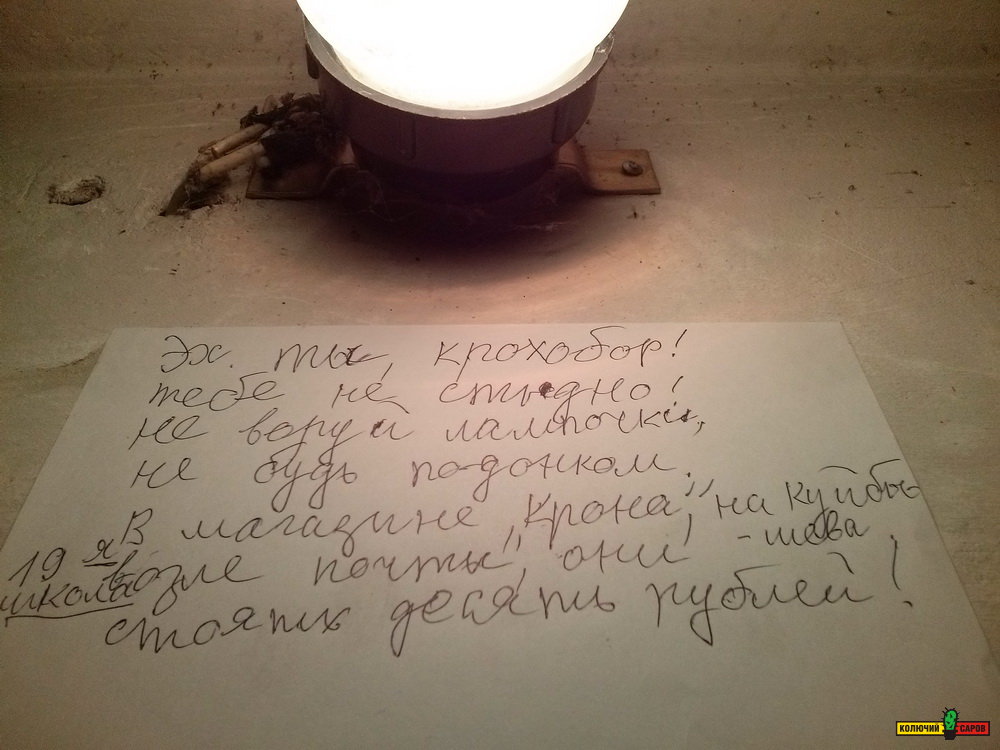 Эх ты, крохобор!
тебе не стыдно!
не воруй лампочки,
не будь подонком.
В магазине „Крона", на Куйбы-
-шева,
19я школа
возле „почты", они
стоять десять рублей!
КОЛЮЧИЙ САРОВ